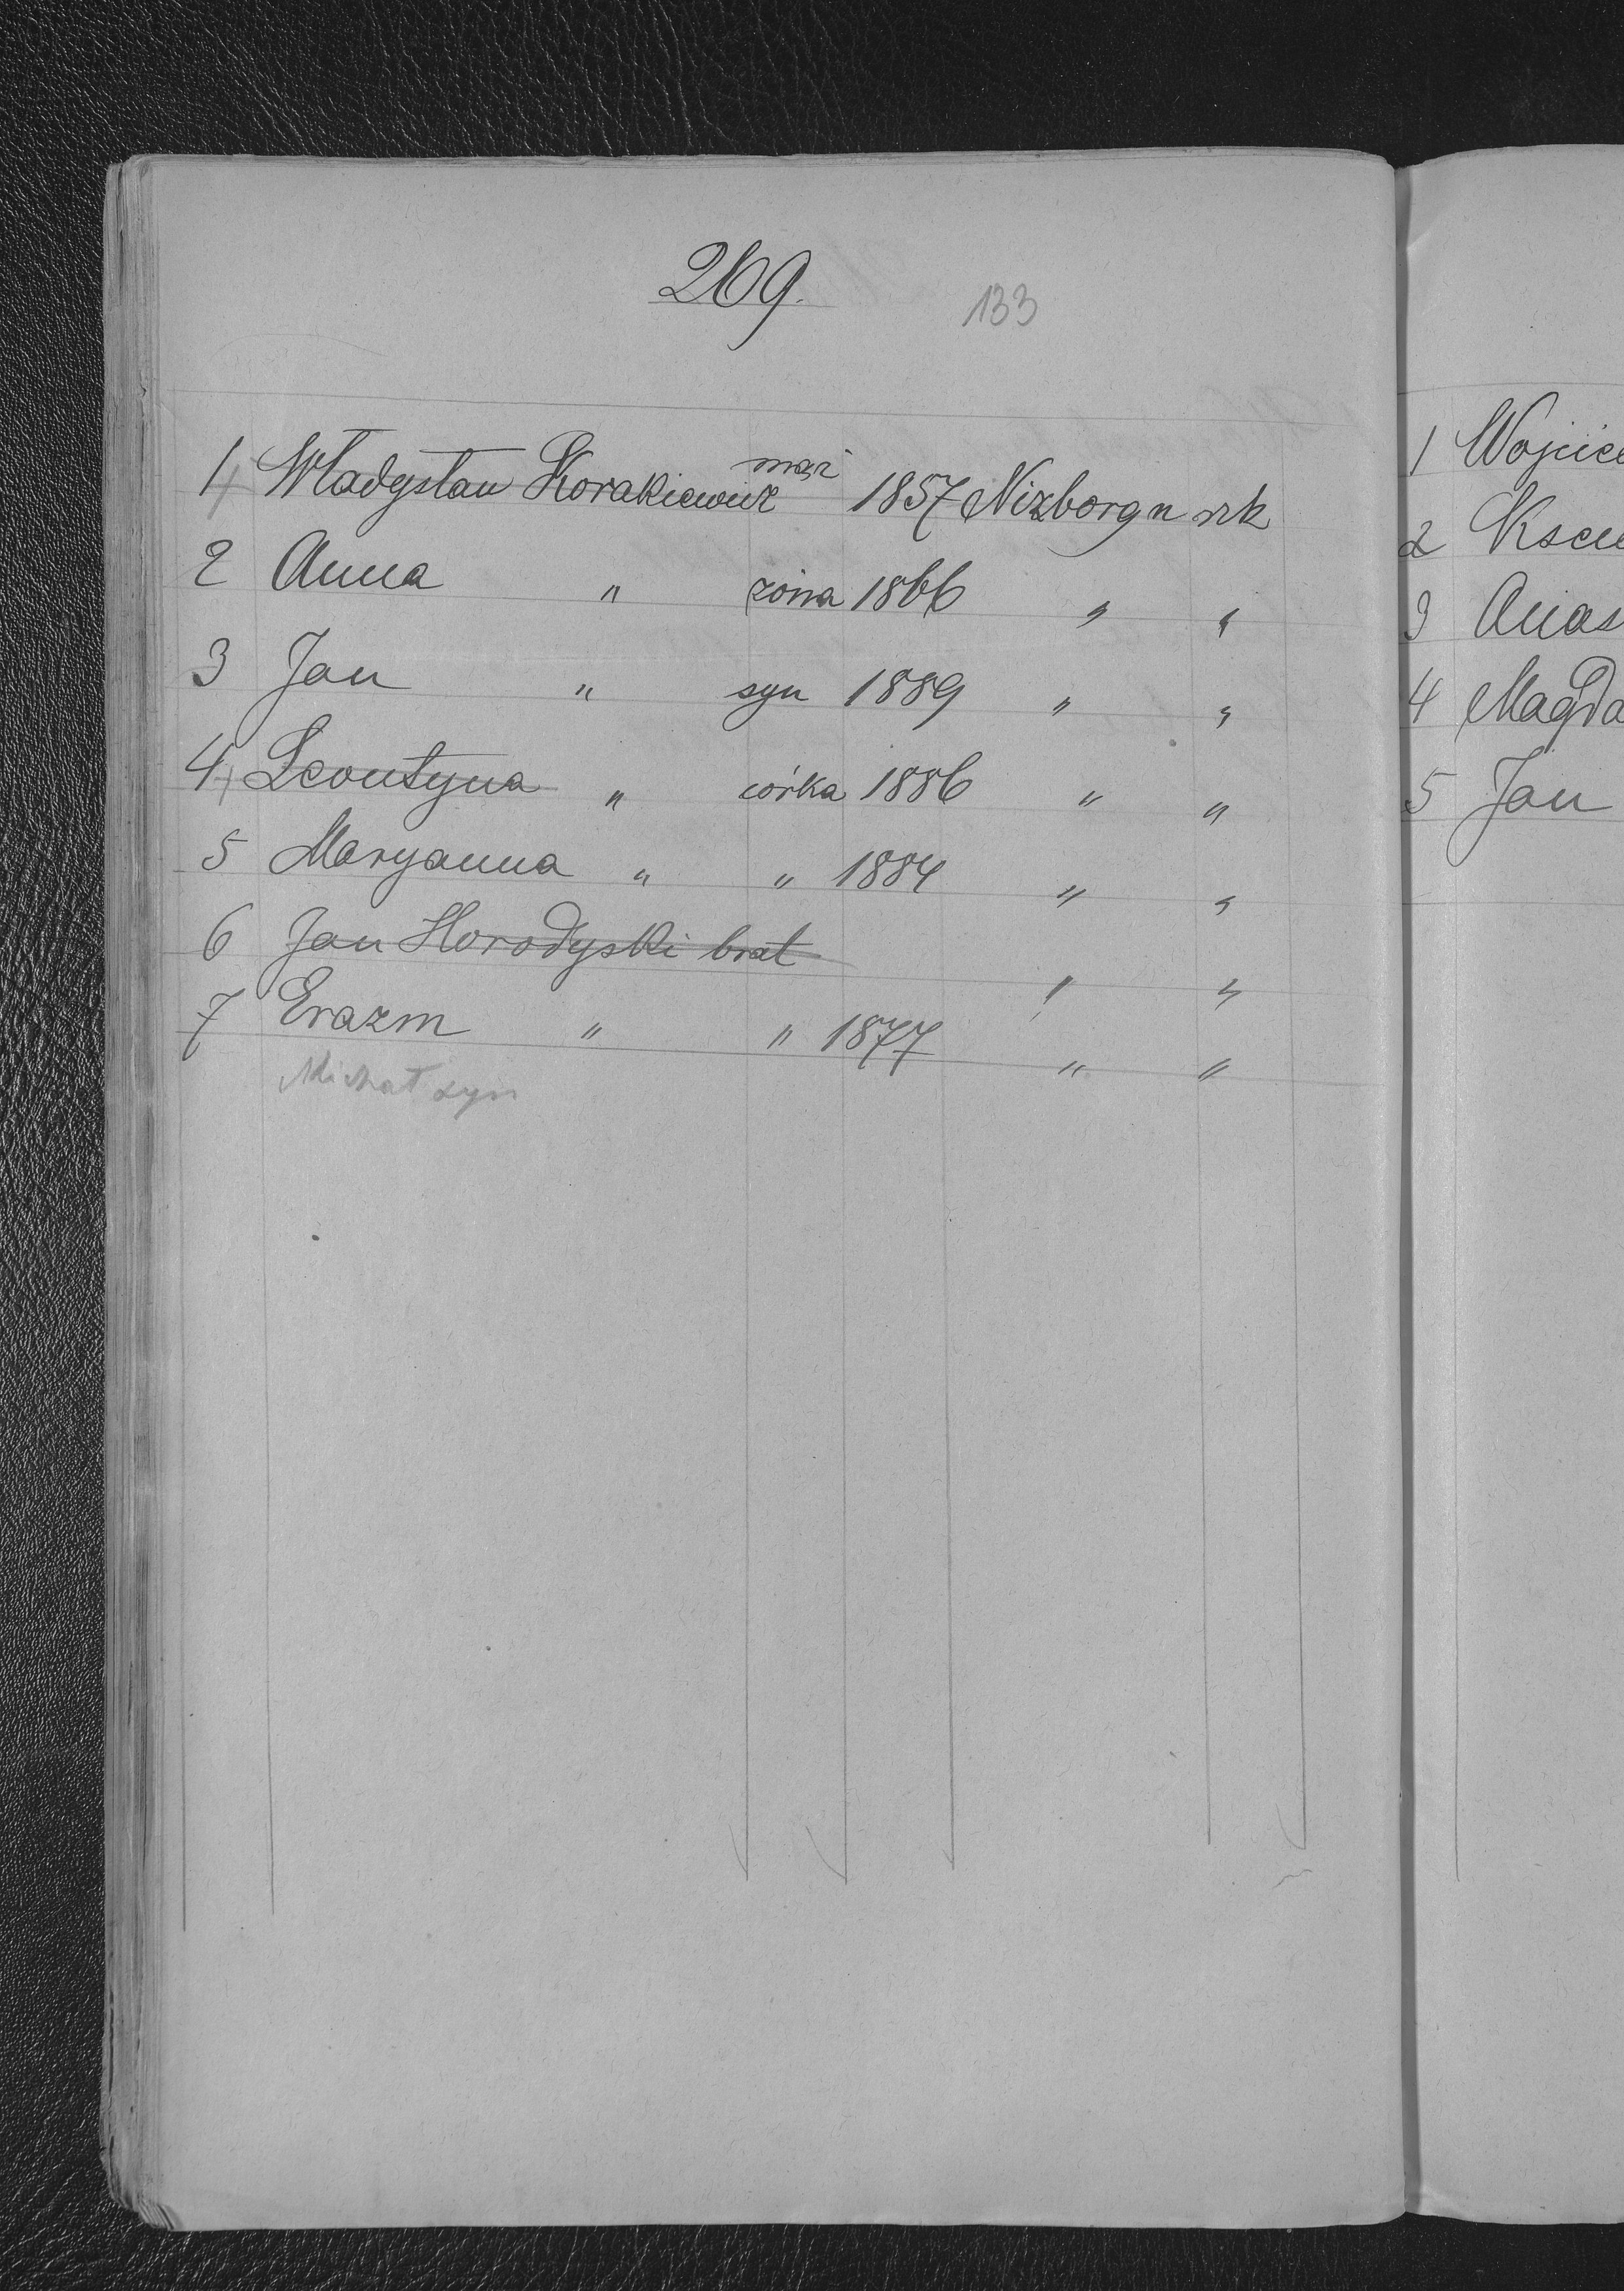 269.
133
1 Władysław Korakiewicz mąż 1857 Nizborg n rzk
2 Anna " żona 1866 " "
3 Jan " syn 1889 " "
4 Leontyna " córka 1886 " "
5 Maryanna " " 1884 " "
6 Jan Horodyski brat " "
7 Erazm " " 1877 " "
Michał syn
1 Wojcie
2 Ksen
3 Anas
4 Magda
5 Jan